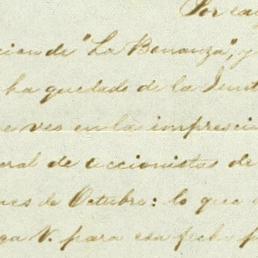 Por ca
cion de "La Bonanza", y
ha quedado de la Junt
e ves en la imprescin
ral de accionistas de
mes de Octubre: lo que
ga V. para esa fecha p